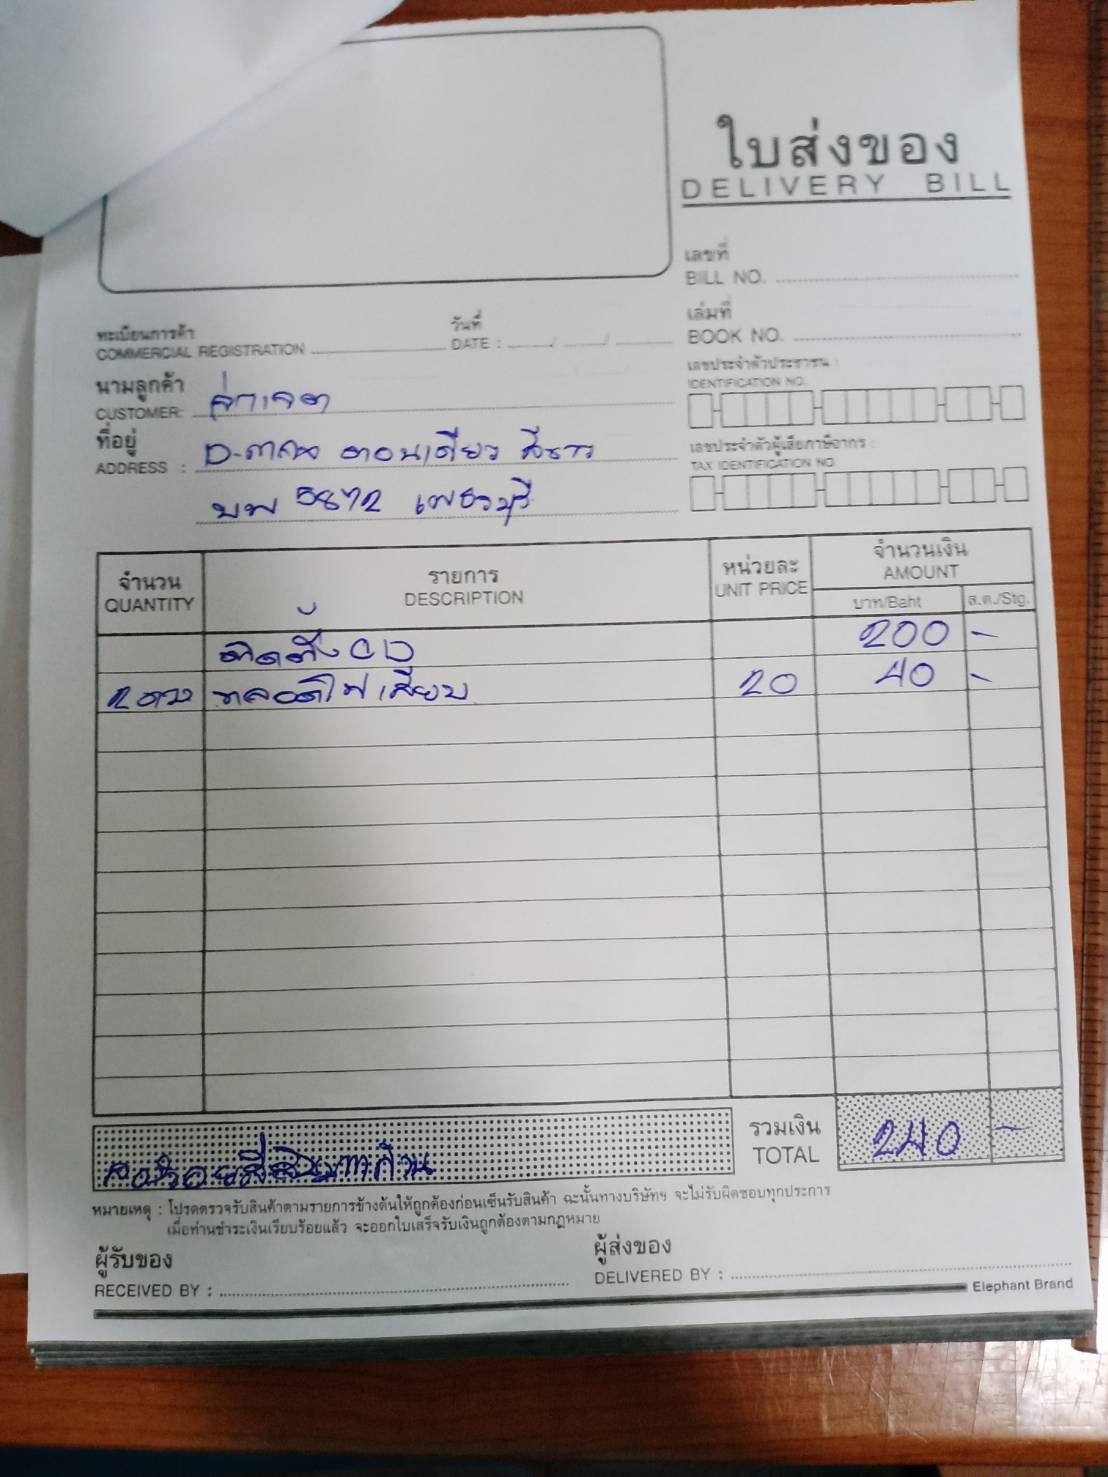 ใบส่งของ
DELIVERY BILL
เลขที่
BILL NO.
ทะเบียนการค้า
COMMERCIAL REGISTRATION
วันที่
DATE : / /
เล่มที่
BOOK NO.
นามลูกค้า
CUSTOMER:
เลขประจำตัวประชาชน :
IDENTIFICATION NO.
ที่อยู่
ADDRESS : D-max ตอนเดียว สีขาว
เลขประจำตัวผู้เสียภาษีอากร :
TAX IDENTIFICATION NO.
บพ 5872 เพชรบุรี
จำนวน QUANTITY รายการ DESCRIPTION หน่วยละ UNIT PRICE จำนวนเงิน AMOUNT
บาท/Baht ส.ต./Stg.
ติดตั้ง CD 200 -
2 ดวง หลอดไฟเสียบ 20 40 -
รวมเงิน TOTAL 240 -
หมายเหตุ : โปรดตรวจรับสินค้าตามรายการข้างต้นให้ถูกต้องก่อนเซ็นรับสินค้า ฉะนั้นทางบริษัทฯ จะไม่รับผิดชอบทุกประการ
เมื่อท่านชำระเงินเรียบร้อยแล้ว จะออกใบเสร็จรับเงินถูกต้องตามกฎหมาย
ผู้รับของ
RECEIVED BY :
ผู้ส่งของ
DELIVERED BY :
Elephant Brand